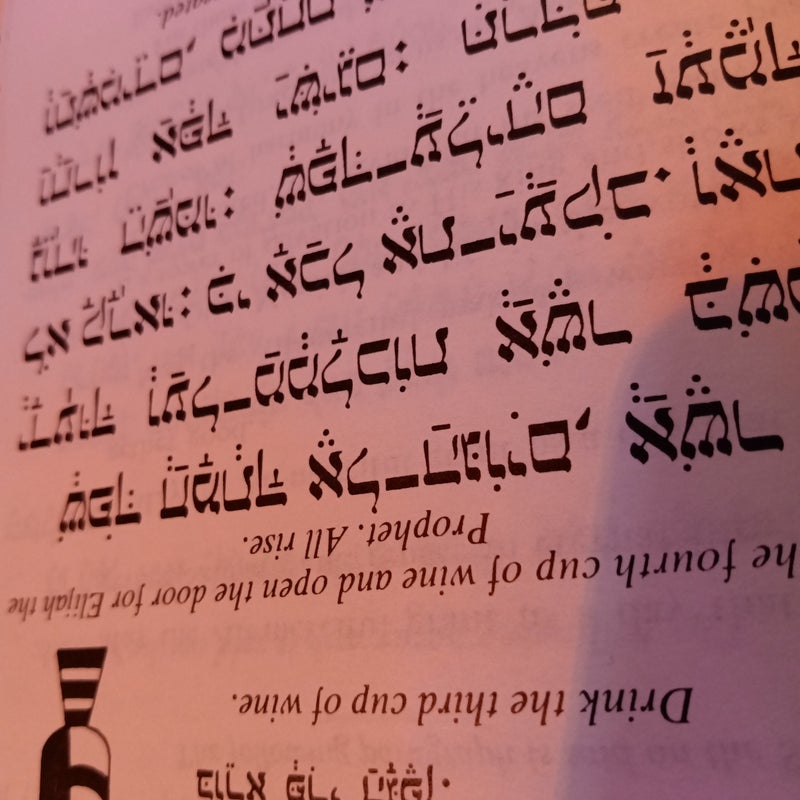 בּוֹרֵא פְּרִי הַגָּפֶן.
Drink the third cup of wine.
he fourth cup of wine and open the door for Elijah the
Prophet. All rise.
שְׁפֹךְ חֲמָתְךָ אֶל־הַגּוֹיִם, אֲשֶׁר
יְדָעוּךָ וְעַל־מַמְלָכוֹת אֲשֶׁר
לֹא קָרָאוּ: כִּי אָכַל אֶת־יַעֲקֹב.
נָוֵהוּ הֵשַׁמּוּ: שְׁפָךְ־עֲלֵיהֶם
וַחֲרוֹן אַפְּךָ יַשִּׂיגֵם: תִּרְדֹּף
וְתַשְׁמִידֵם, מִתַּחַת